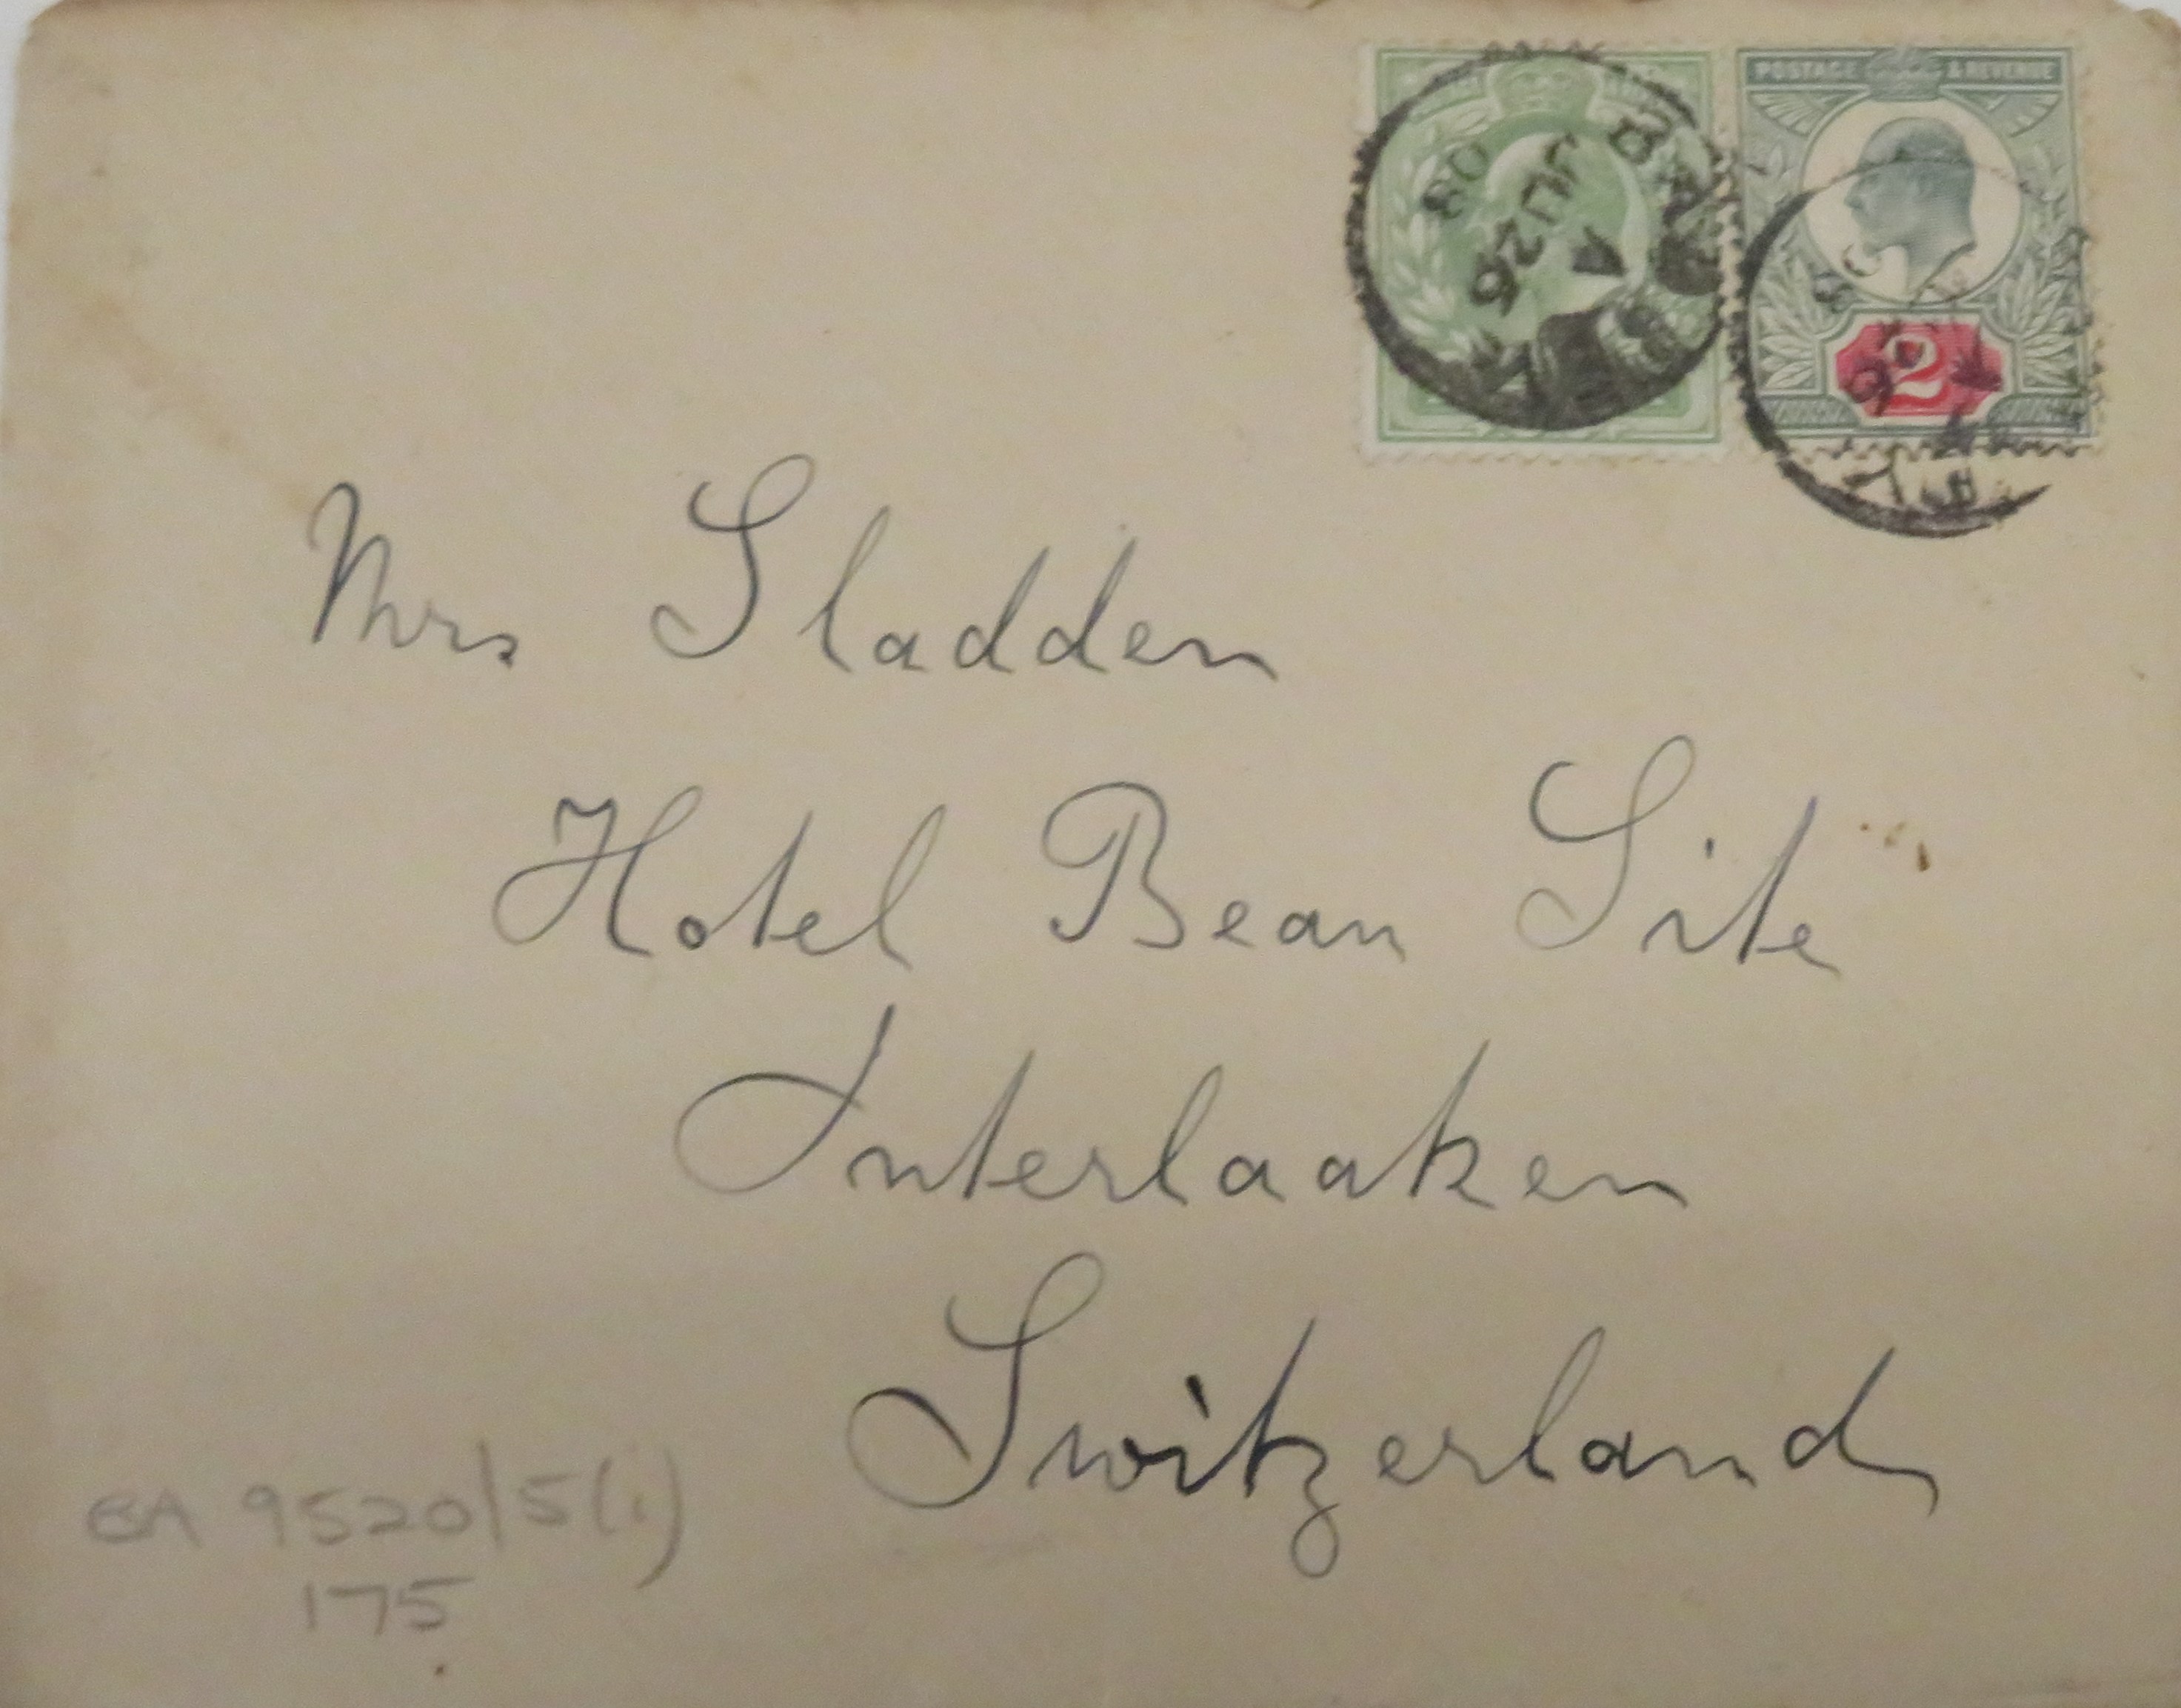 POSTAGE & REVENUE
JU 26
08
A
2
Mrs Sladden
Hotel Beau Site
Interlaaken
Switzerland
BA 9520/5(i)
175